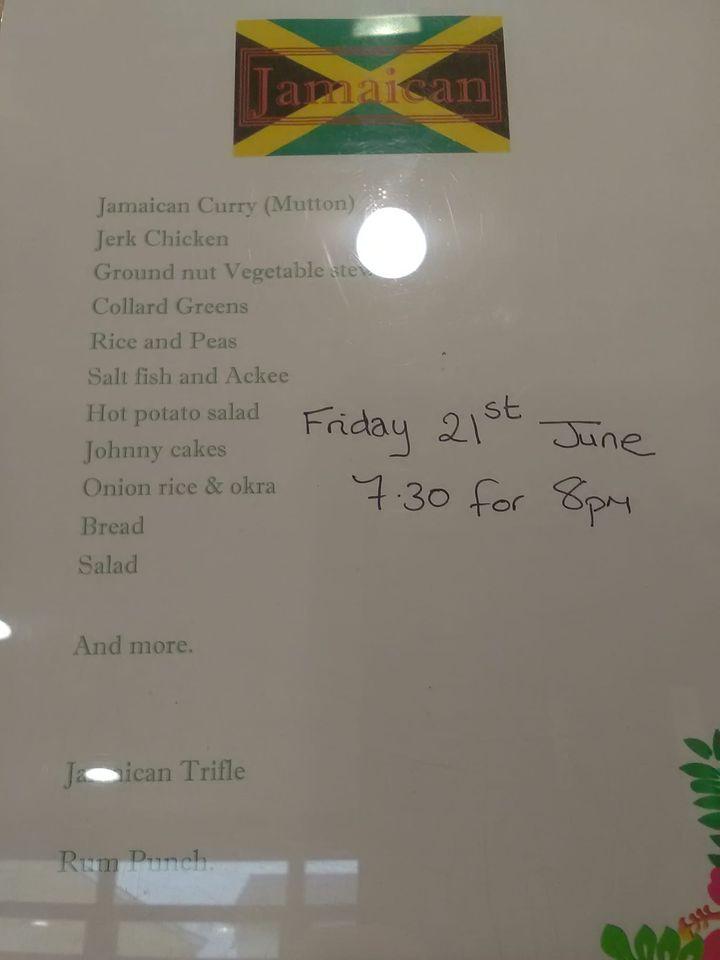 Jamaican
Jamaican Curry (Mutton)
Jerk Chicken
Ground nut Vegetable
Collard Greens
Rice and Peas
Salt fish and Ackee
Hot potato salad
Johnny cakes
Onion rice & okra
Bread
Salad
Friday 21st June
7.30 for 8pm
And more.
Jamaican Trifle
Rum Punch.